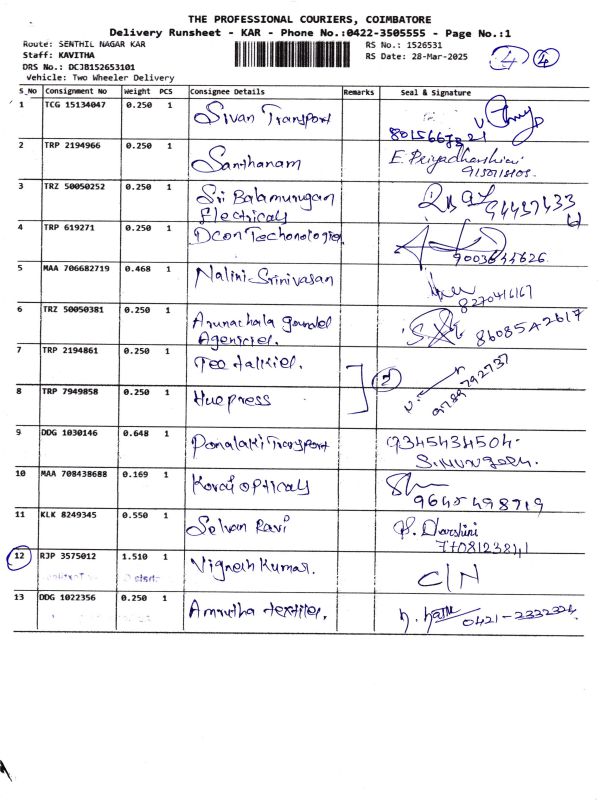 THE PROFESSIONAL COURIERS, COIMBATORE
Delivery Runsheet - KAR - Phone No.:0422-3505555 - Page No.:1
Route: SENTHIL NAGAR KAR
RS No.: 1526531
Staff: KAVITHA
RS Date: 28-Mar-2025
DRS No.: DCJB152653101
Vehicle: Two Wheeler Delivery
4 4
S_No Consignment No Weight PCS Consignee Details Remarks Seal & Signature
1 TCG 15134047 0.250 1 Sivan Transport
2 TRP 2194966 0.250 1 Santhanam E. Priyadharshini
3 TRZ 50050252 0.250 1 Sri Balamurugan
Electricals
4 TRP 619271 0.250 1 Dcon Techonologies 9003644626
5 MAA 706682719 0.468 1 Nalini Srinivasan
8270416167
6 TRZ 50050381 0.250 1 Arunachala gounder
Agencies. 86085 42617
7 TRP 2194861 0.250 1 Tee talkies.
2
8 TRP 7949858 0.250 1 Huepress 9789792737
9 DDG 1030146 0.648 1 Ponalaki Transport 9345434504.
S.Murugesh.
10 MAA 708438688 0.169 1 Kovai opticals
9645498719
11 KLK 8249345 0.550 1 Selvan Ravi P. Darshini
7708123841
12 RJP 3575012 1.510 1 Vignesh Kumar. C/N
13 DDG 1022356 0.250 1 Amrutha textiles. 0421-2332324